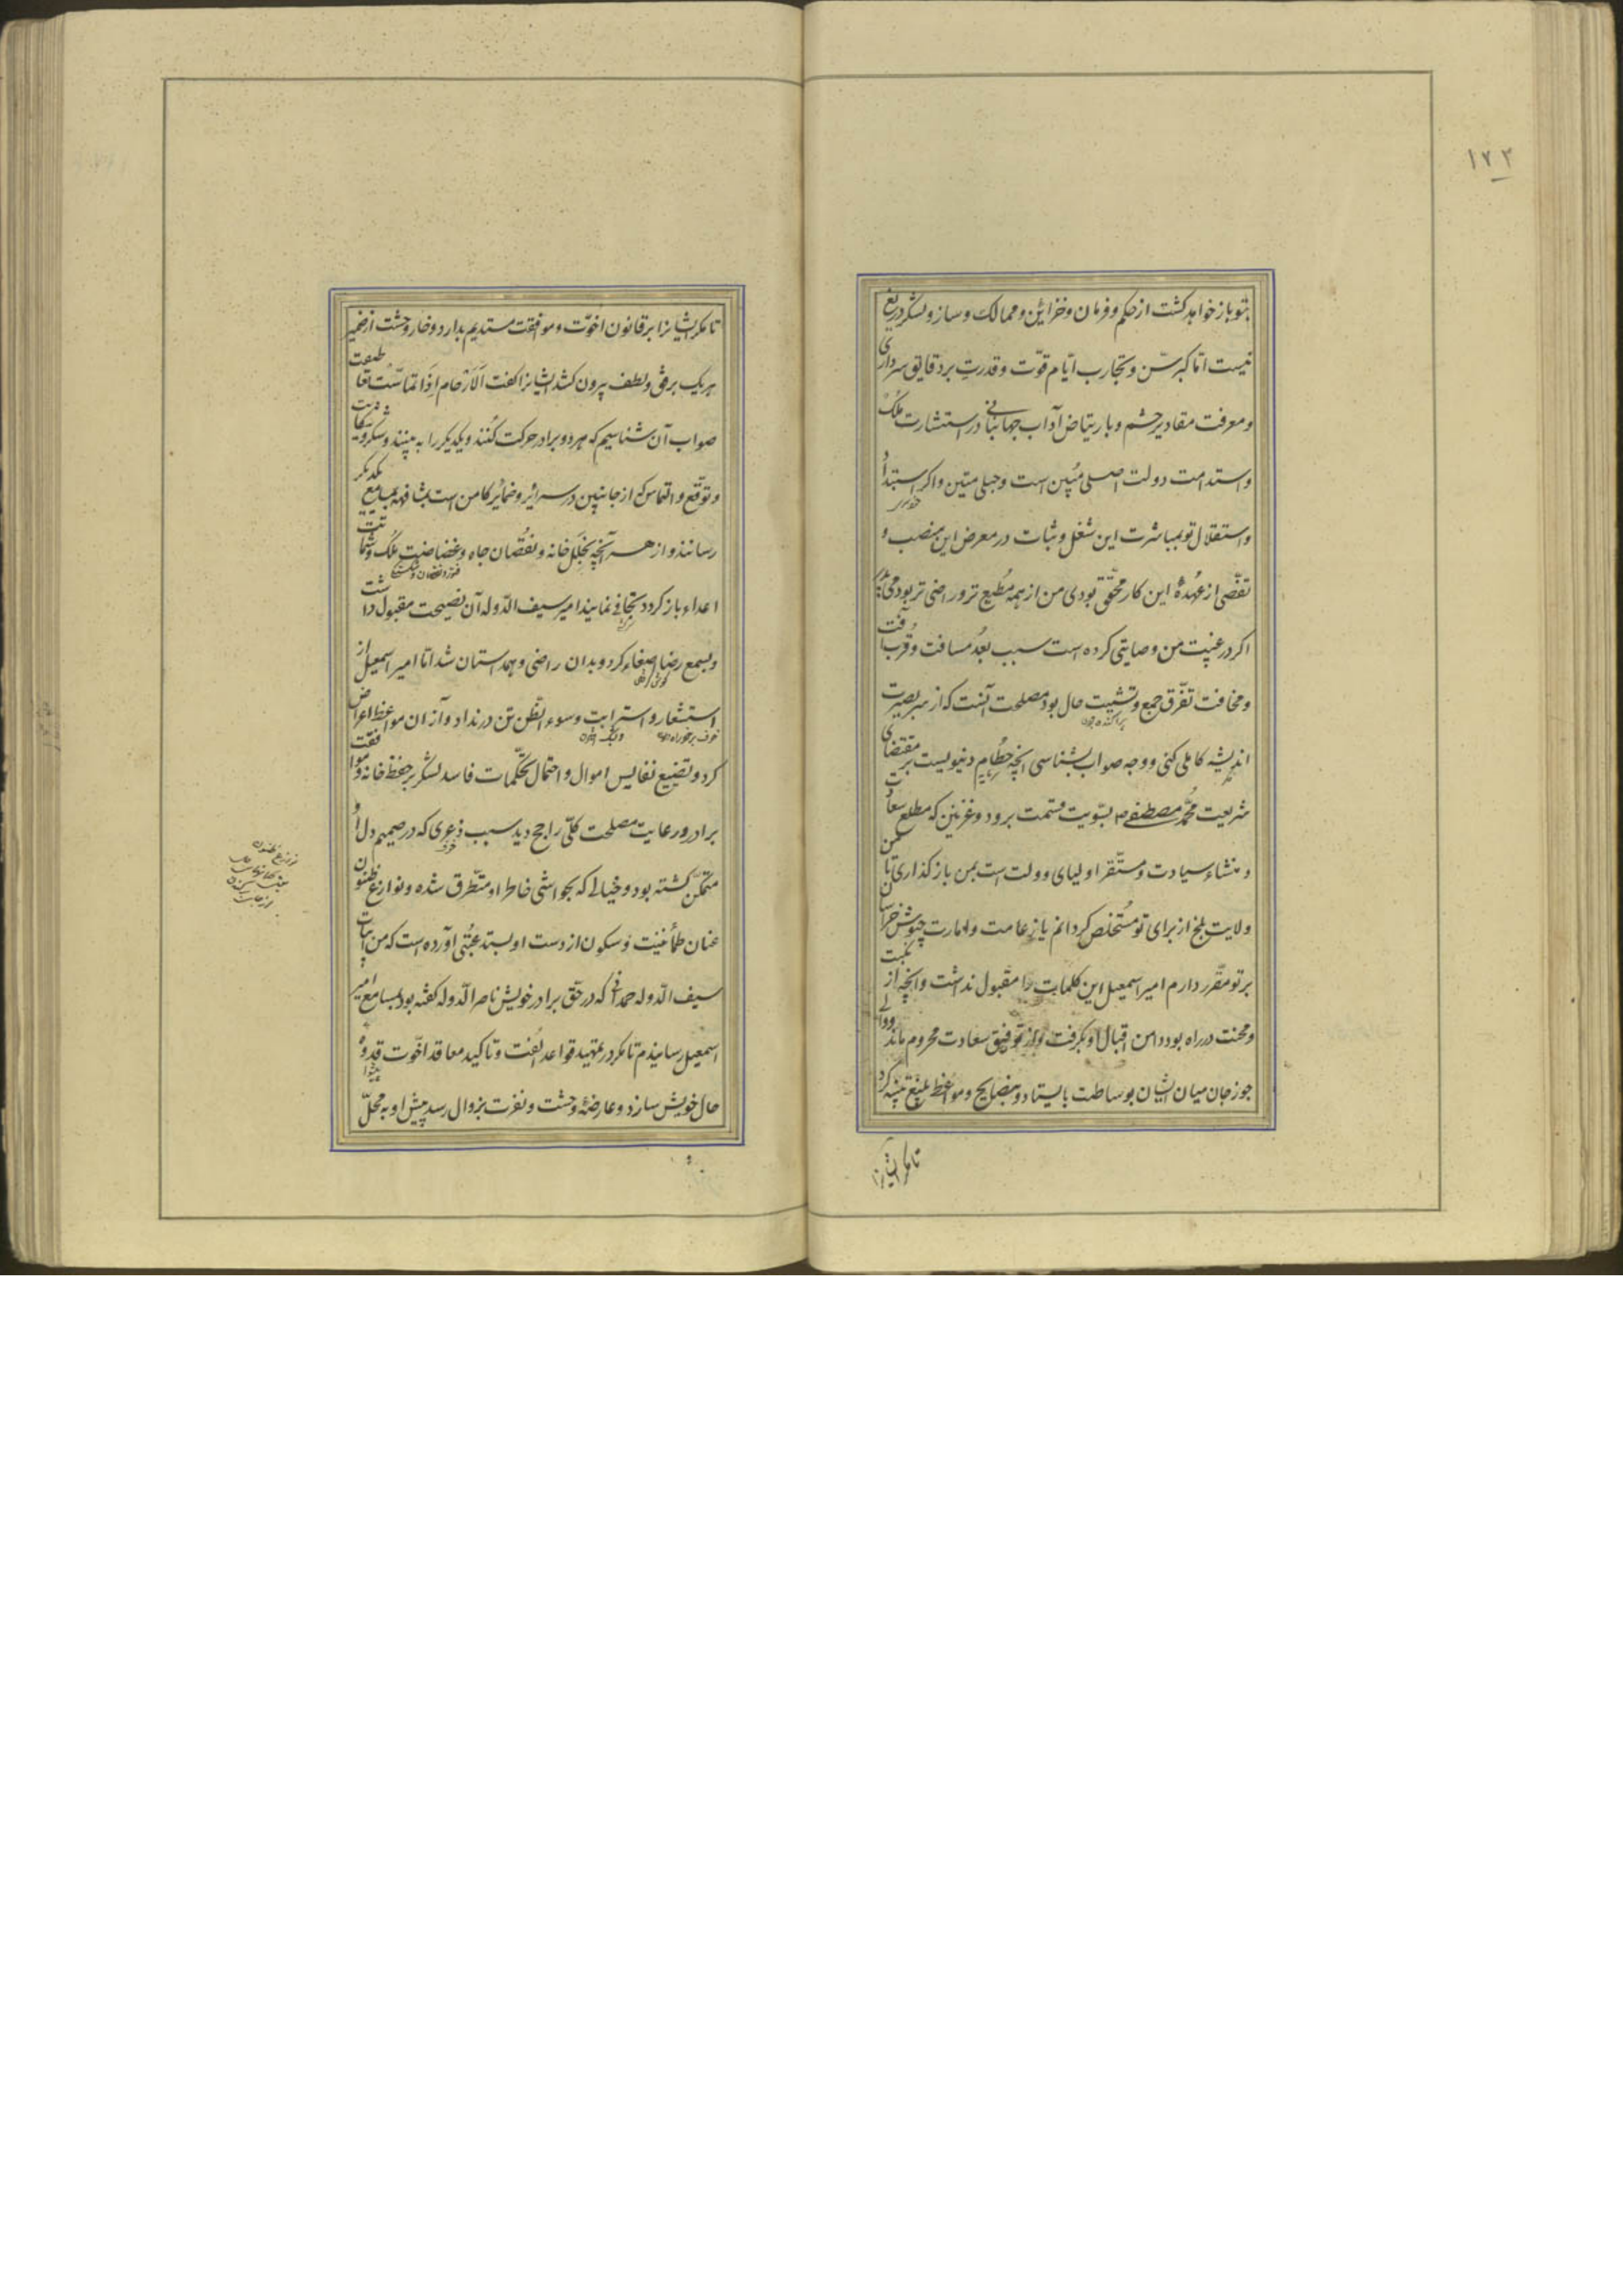 ۱۷۳
بتو باز خواهد کشت از حکم و فرمان و خزاین و ممالک و ساز و لشکر دریغ
نیست اما کبر سن و تجارب ایام قوت و قدرت بر دقایق سرداری
و معرفت مقادیر حشم و بارتیاض آداب جهانبانی در استشارت ملک
و استدامت دولت اصلی مبین است و حبلی متین و اکر استبداد
خودسری
و استقلال تو بمباشرت این شغل و ثبات در معرض این منصب و
تفصی از عهدهٔ این کار محقق بودی من از همه مطیع تر و راضی تر بودمی پدر
اکر در غیبت من وصایتی کرده است سبب بعد مسافت و قرب آفت
و مخافت تفرق جمع و تشتیت حال بود مصلحت آنست که از سر بصیرت
پراکنده بودن
اندیشه کاملی کنی و وجه صواب بشناسی آنچه حطام دنیویست بر مقتضای
شریعت محمد مصطفی ص بسویت قسمت برود و غزنین که مطلع سعادت
و منشاء سیادت و مستقر اولیای دولت است بمن باز کذاری تا من
ولایت بلخ از برای تو مستخلص کردانم یا زعامت و امارت جیوش خراسان
بر تو مقرر دارم امیر اسمعیل این کلمات را مقبول نداشت و آنچه از نکبت
و محنت در راه بود دامن اقبال او بکرفت و از توفیق سعادت محروم ماند و والی
جوزجان میان ایشان بوساطت بایستاد و بنصایح و مواعظ بلیغ تنبیه کرد
تا مکر ایشانرا
تا مکر ایشانرا بر قانون اخوت و موافقت مستدیم بدارد و خار وحشت از ضمیر
هر یک برفق و لطف بیرون کشد ایشانرا کفت الارحام اذا تماست تعاطفت
صواب آن شناسیم که هر دو برادر حرکت کنند و یکدیکر را به بینند و شکر و شکایت
و توقع و التماس که از جانبین در سرائر و ضمائر کامن است بمشافهه بمسامع یکدیکر
رسانند و از هر آنچه بخلل خانه و نقصان جاه و غضاضت ملک و شماتت
اعداء باز کردد تجافی نمایند امیر سیف الدوله آن نصیحت مقبول داشت
و بسمع رضا اصغاء کرد و بدان راضی و همداستان شد اما امیر اسمعیل از
استشعار و استرابت و سوء الظن تن در نداد و از آن مواعظ اعراض
کرد و تضییع نفایس اموال و احتمال تحکمات فاسد لشکر بر حفظ خانه و موافقت
برادر و رعایت مصلحت کلی راجح دید بسبب ذعری که در صمیم دل او
متمکن کشته بود و خیالی که بحواشی خاطر او متطرق شده و نوازع ظنون
عنان طمأنینت و سکون از دست او بستد عتبی آورده است که من ابیات
سیف الدوله حمدانی که در حق برادر خویش ناصر الدوله کفته بود بمسامع امیر
اسمعیل رسانیدم تا مکر در تمهید قواعد الفت و تاکید معاقد اخوت قدوهٔ
پیشوا
حال خویش سازد و عارضهٔ وحشت و نفرت بزوال رسد پیش او به محل